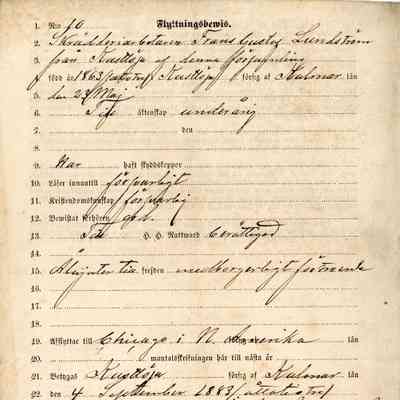 Flyttningsbewis.
1. N:o 16
2. Skrädderiarbetaren Frans Gustaf Lundström
3. från Kusthöja af denna församling
4. född år 1863 Kusthöja förslg af Kalmar län
5. den 23 Maj
6. Till äktenskap underårig
7. den
8.
9. Har haft skyddskoppor
10. Läser innantill försvarligt
11. Kristendomskunskap försvarlig
12. Bewistat förhören god.
13. Till H. H. Nattward berättigad
14.
15. Åtnjuter till frejden medborgerligt förtroende
16.
17.
18.
19. Afflyttar till Chicago i N. Amerika län
20. mantalsskrifningen här till nästa år
21. Betygas Kusthöja förslg af Kalmar län
22. den 4 September 1883